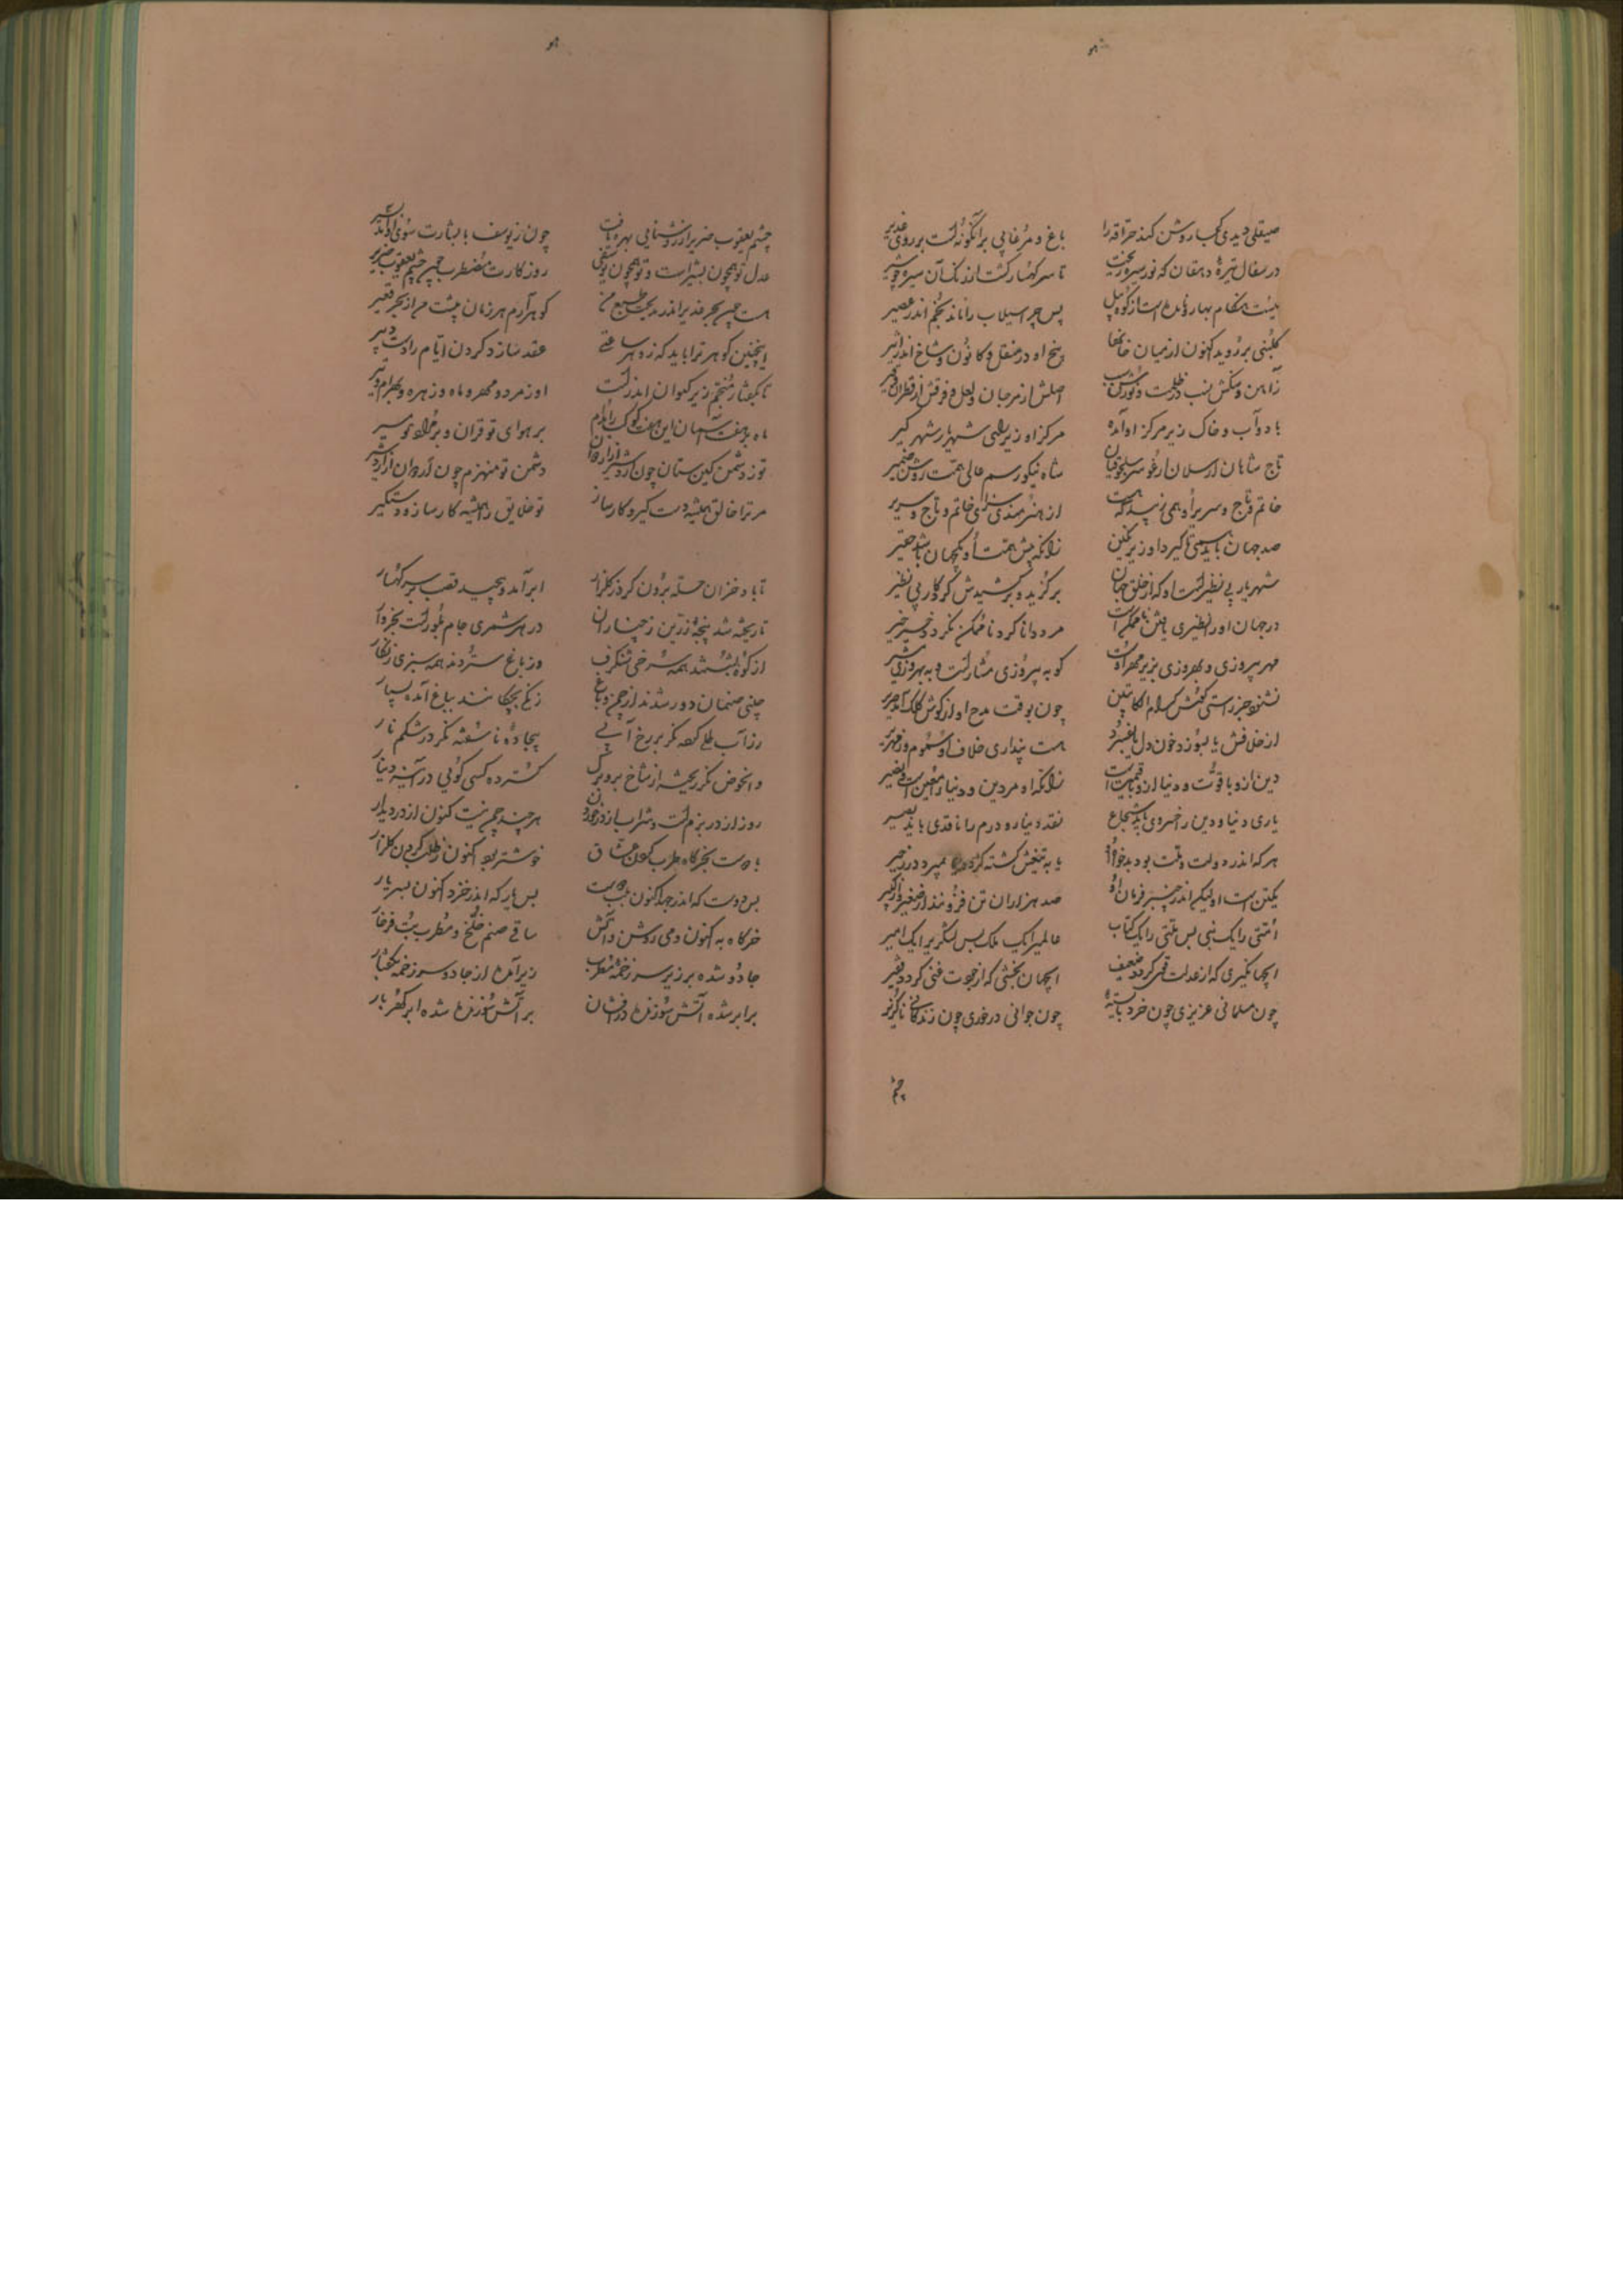 صیقلی دیدی کجا روشن کند حراقه را باغ و مرغابی برآنگونه است بر روی غدیر
در سفال تیرهٔ دهقان که نور سیره ریخت تا سر کهسار گشت از رنگ آن سیره چو شیر
نیست هنگام بهار و آمده است از کوه سیل پس چرا سیلاب را ماند بخم اندر عصیر
گلبنی بر روید اکنون از میان خانها بیخ او در منقل و کانون و شاخ اندر اثیر
زآهن و سنگش نسب در ظلمت و نورش اصلش از مرجان و لعل و فرقش از قطران و قیر
باد و آب و خاک زیر مرکز او آمده مرکز او زیر شهریار شهر گیر
تاج شاهان ارسلان ارغو سر سلجوقیان شاه نیکو رسم عالی همت روشن ضمیر
خاتم و تاج و سریر او همی زیبد که هست از هنرمندی سزای خاتم و تاج و سریر
صد جهان باید همی تا گیرد او زیر نگین زانکه پیش همت او یکجهان باشد حقیر
شهریار بی نظیر است او که از خلق جهان برگزید و برکشیدش کردگار بی نظیر
در جهان او را نظیری یافتن ناممکن است مرد دانا گرد ناممکن نگردد خیر خیر
مهر پیروزی و بهروزی بزیر مهر اوست کو به پیروزی مشار است و به بهروزی مشیر
نشنود جز راستی گوشش کرام الکاتبین چون بوقت مدح او از گوش کلک آید صریر
از خلافش یا بسوزد خون دل یا بفسرد هست پنداری خلاف او سموم و زمهریر
دین ازو با قوت و دنیا ازو با قیمت است زانکه او مر دین و دنیا را معین است و نصیر
یاری دنیا و دین را خسروی باید شجاع نقد دینار و درم را ناقدی باید بصیر
هر که اندر دولت و وقت بود بدخواه او یا به تیغش کشته گردد یا بمیرد در زحیر
یکتن است او لیکن اندر چنبر فرمان او صد هزاران تن فزونند از صغیر و از کبیر
امتی را یک نبی بس ملتی را یک کتاب عالمی را یک ملک بس لشکری را یک امیر
ای جهانگیری که از عدلت قوی گردد ضعیف ای جهان بخشی که از جودت غنی گردد فقیر
چون مسلمانی عزیزی چون خرد بایسته چون جوانی در خوری چون زندگانی ناگزیر
چشم یعقوب ضریر از روشنایی بهره یافت چون ز یوسف با بشارت سوی او آمد بشیر
عدل تو همچون بشیر است و تو همچون یوسفی روزگارت مضطرب چون چشم یعقوب ضریر
هست چون بحر غدیر اندر مدیحت طبع من گوهر آرم هر زمان پیشت من از بحر قعیر
اینچنین گوهر ترا باید که زو هر ساعتی عقد سازد گردن ایام را دست دبیر
تا بگفتار منجم زیر کیوان اندر است اورمزد و مهر و ماه و زهره و بهرام و تیر
باد بر هفت آسمان این هفت کوکب را مدام بر هوای تو قران و بر مراد تو مسیر
تو ز دشمن کین ستان چون اردشیر از اردوان دشمن تو منهزم چون اردوان از اردشیر
مر ترا خالق همیشه دستگیر و کارساز تو خلایق را همیشه کارساز و دستگیر
تا باد خزان حله برون کرد ز گلزار ابر آمد و پیچید قصب بر سر کهسار
تا ریخته شد پنجهٔ زرین ز چناران در هر شمری جام بلور است بخروار
از کوه بشستند همه سرخی شنگرف وز باغ ستردند همه سبزی زنگار
چینی صنمان دور شدند از چمن و باغ زنگی بچگانند بباغ آمده بسیار
زرآب طلی کرده نگر بر رخ آبی بیجادهٔ ناسفته نگر در شکم نار
وانحوض نگر ریخته از شاخ برو برگ گسترده کسی گویی در آینه دینار
روز از در بزم است و شراب از در خوردن هر چند چمن نیست کنون از در دیدار
با دوست بخرگاه طرب کردن عشاق خوشتر بود اکنون ز طلب کردن گلزار
بس دوست که اندر جهد اکنون بلب دوست بس یار که اندر خزد اکنون ببر یار
خرگاه به اکنون و می روشن و آتش ساقی صنم خلخ و مطرب بت فرخار
جادو شده بر زیر سر زخمهٔ مطرب زیر آمده از جادو سر زخمه بگفتار
بر ابر شده آتش سوزندهٔ درفشان بر آتش سوزنده شده ابر گهربار